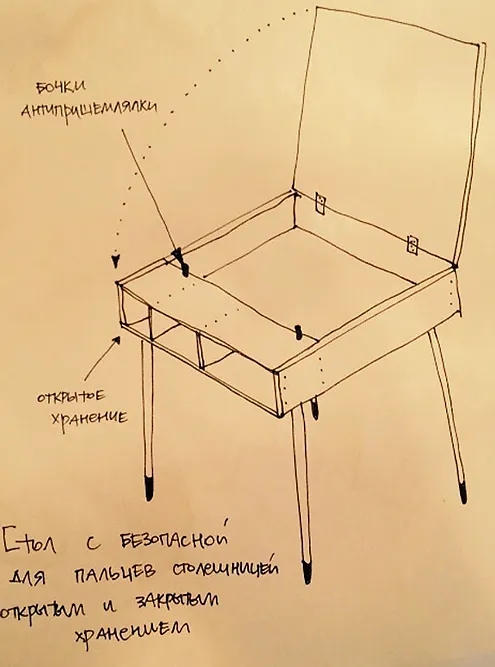 БОЧКИ
АНТИПРИЩЕМЛЯЛКИ
ОТКРЫТОЕ
ХРАНЕНИЕ
Стол с БЕЗОПАСНОЙ
ДЛЯ ПАЛЬЦЕВ СТОЛЕШНИЦЕЙ
ОТКРЫТЫМ И ЗАКРЫТЫМ
ХРАНЕНИЕМ